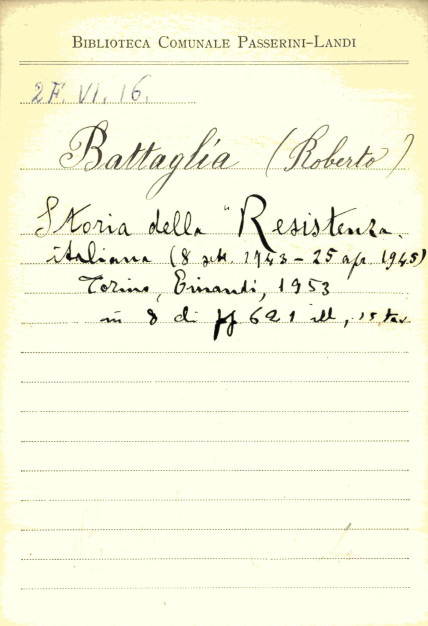 BIBLIOTECA COMUNALE PASSERINI-LANDI
2F. VI. 16.
Battaglia (Roberto)
Storia della "Resistenza
italiana (8 sett. 1943 - 25 apr. 1945)
Torino, Einaudi, 1953
in 8 di pp 621 ill, 15 tav